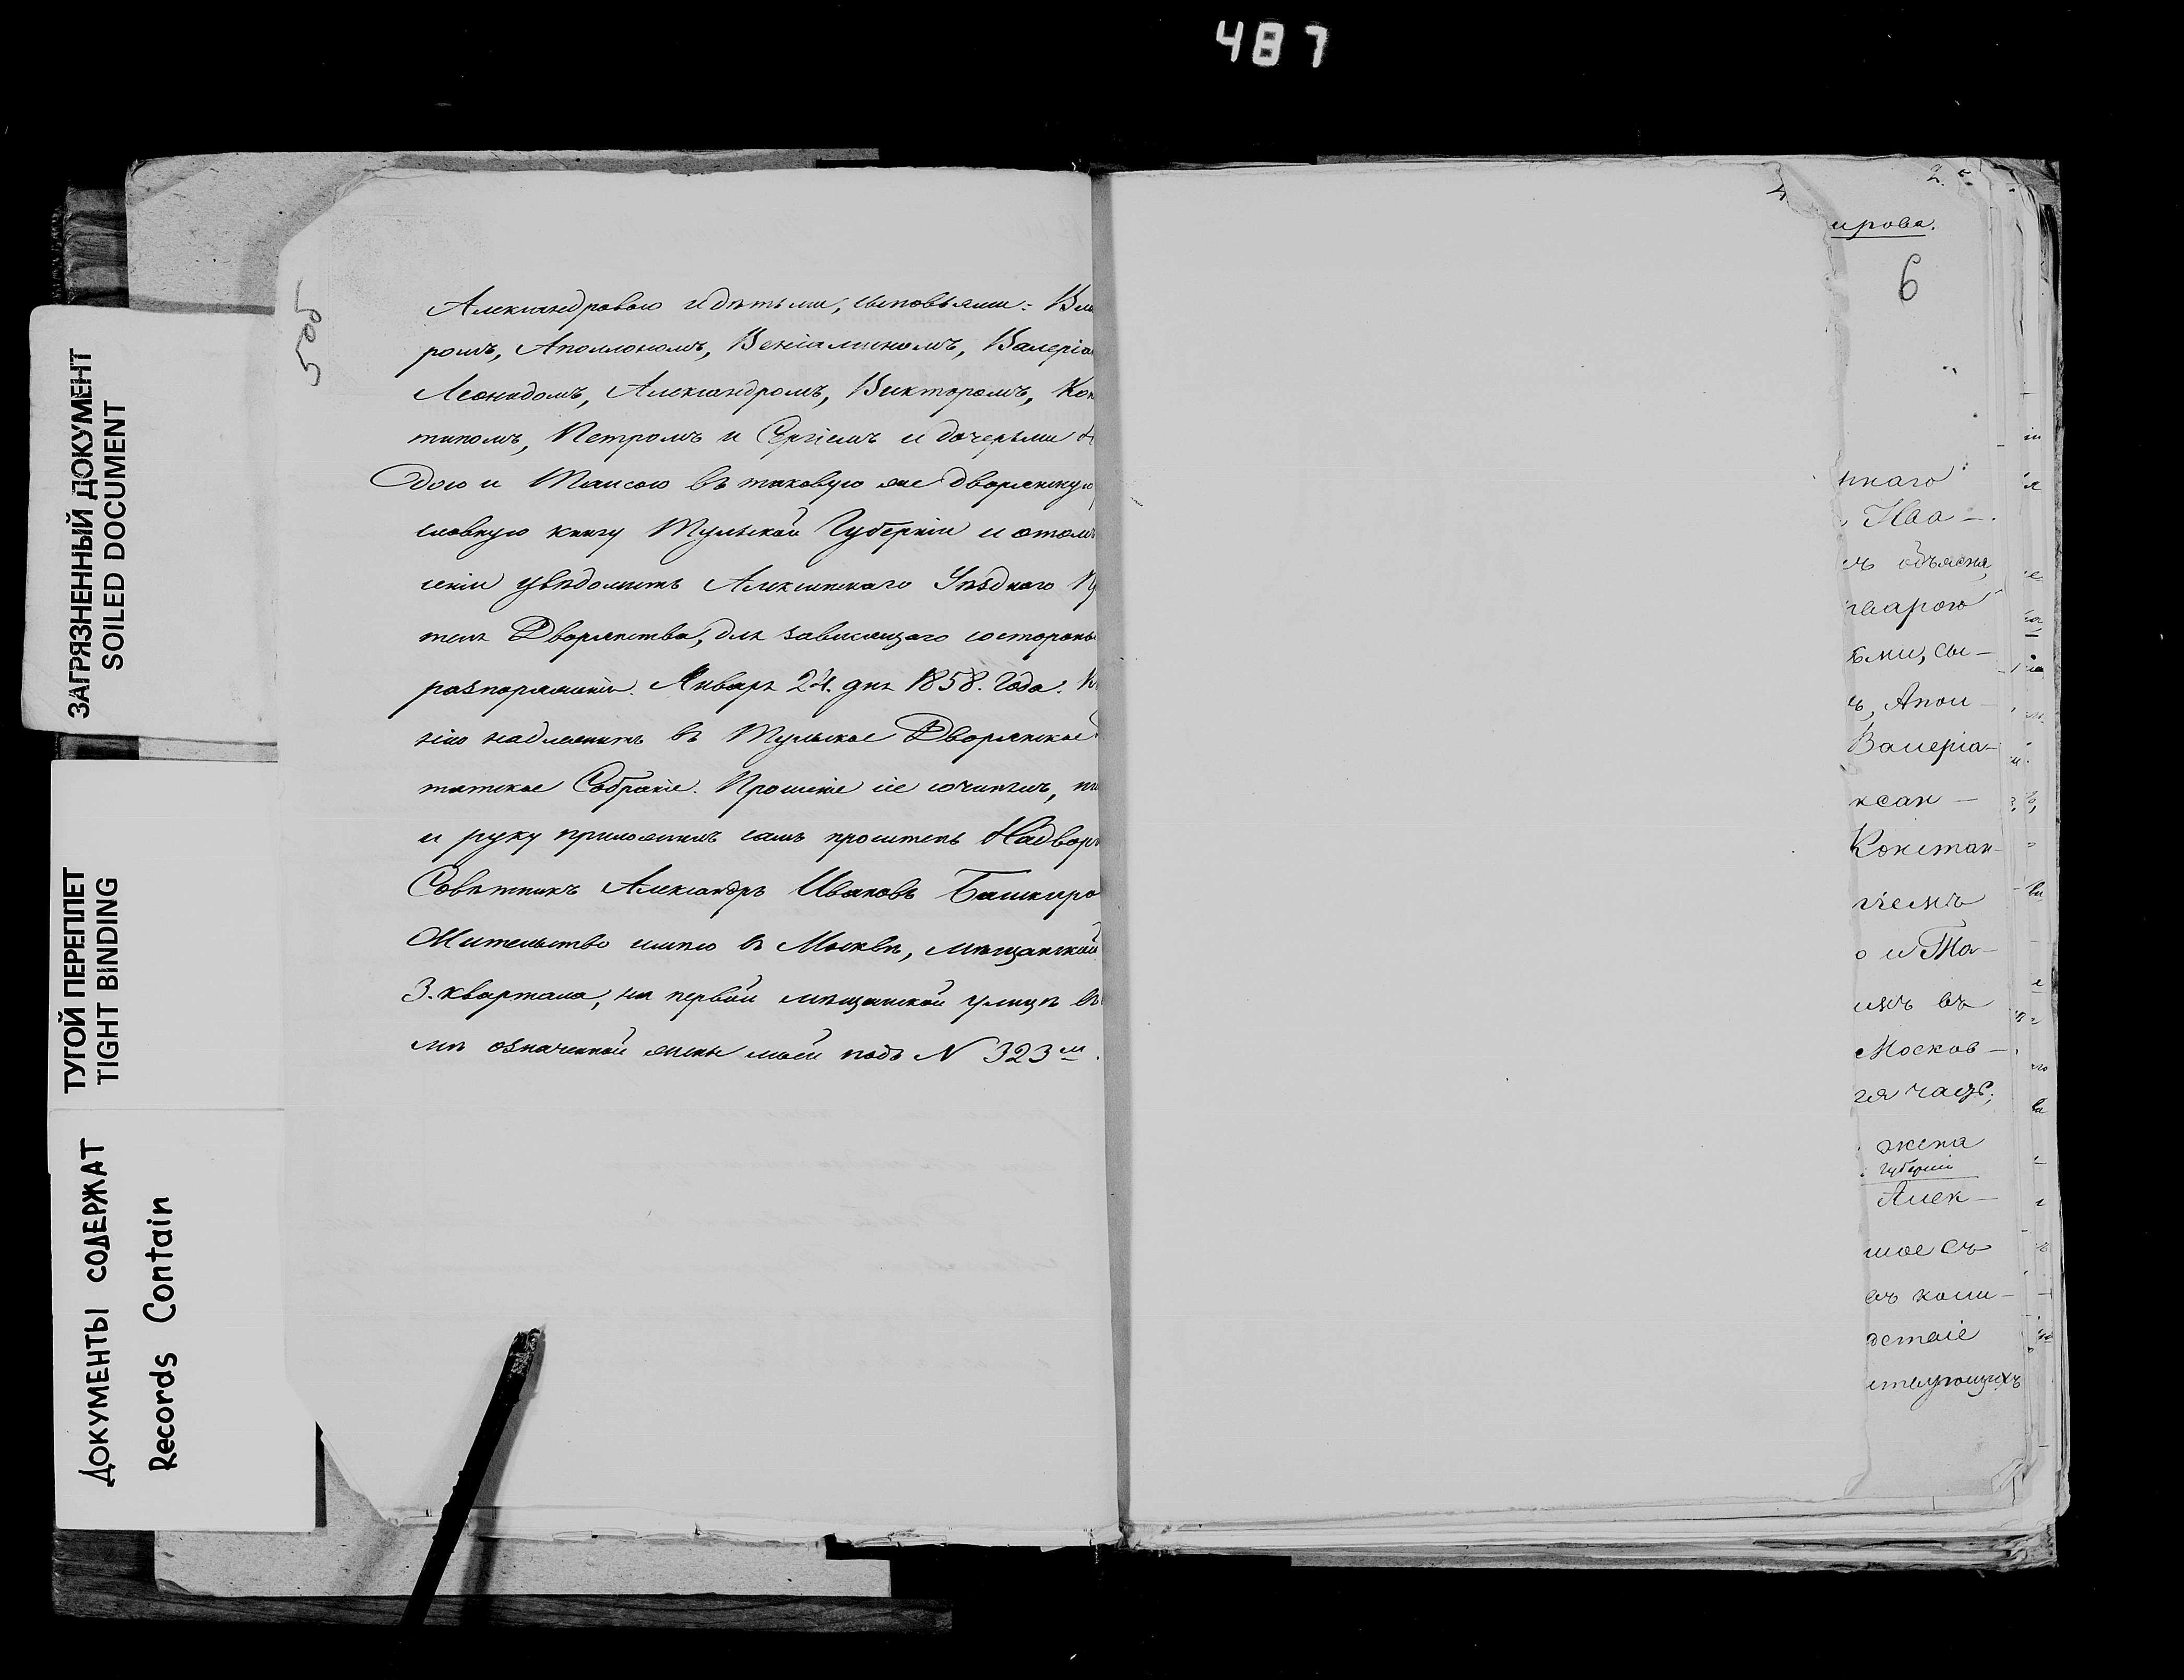 487
ЗАГРЯЗНЕННЫЙ ДОКУМЕНТ
SOILED DOCUMENT
ТУГОЙ ПЕРЕПЛЕТ
TIGHT BINDING
ДОКУМЕНТЫ СОДЕРЖАТ
Records Contain
5 об
Александровою и дѣтьми, сыновьями: Вла
ромъ, Аполлономъ, Веніаминомъ, Валеріа
Леонидомъ, Александромъ, Викторомъ, Кон
тиномъ, Петромъ и Сергіемъ и дочерьми
дою и Таисою въ таковую же дворянскую
словную книгу Тульской Губерніи и отомъ
леніи увѣдомить Алексинскаго Уѣзднаго П
теля Дворянства, для зависящаго состороны
разпоряженія. Января 24. дня 1858. Года.
нію надлежитъ въ Тульское Дворянское
татское Собраніе. Прошеніе сіе сочинялъ, пи
и руку приложилъ самъ проситель Надвор
Совѣтникъ Александръ Ивановъ Башкиро
Жительство имѣю въ Москвѣ, мѣщанской
3. квартала, на первой мѣщанской улицѣ въ
мѣ означенной жены моей подъ N 323м.
2.
ирова.
6
ннаго
Ива-
объясня
варою
ьми, сы-
ъ, Апол-
Валеріа-
ксан-
Констан-
гіемъ
о и Та-
ихъ въ
Москов-
жена
Губерніи
Алек-
шое съ
дстаіе
ствующихъ